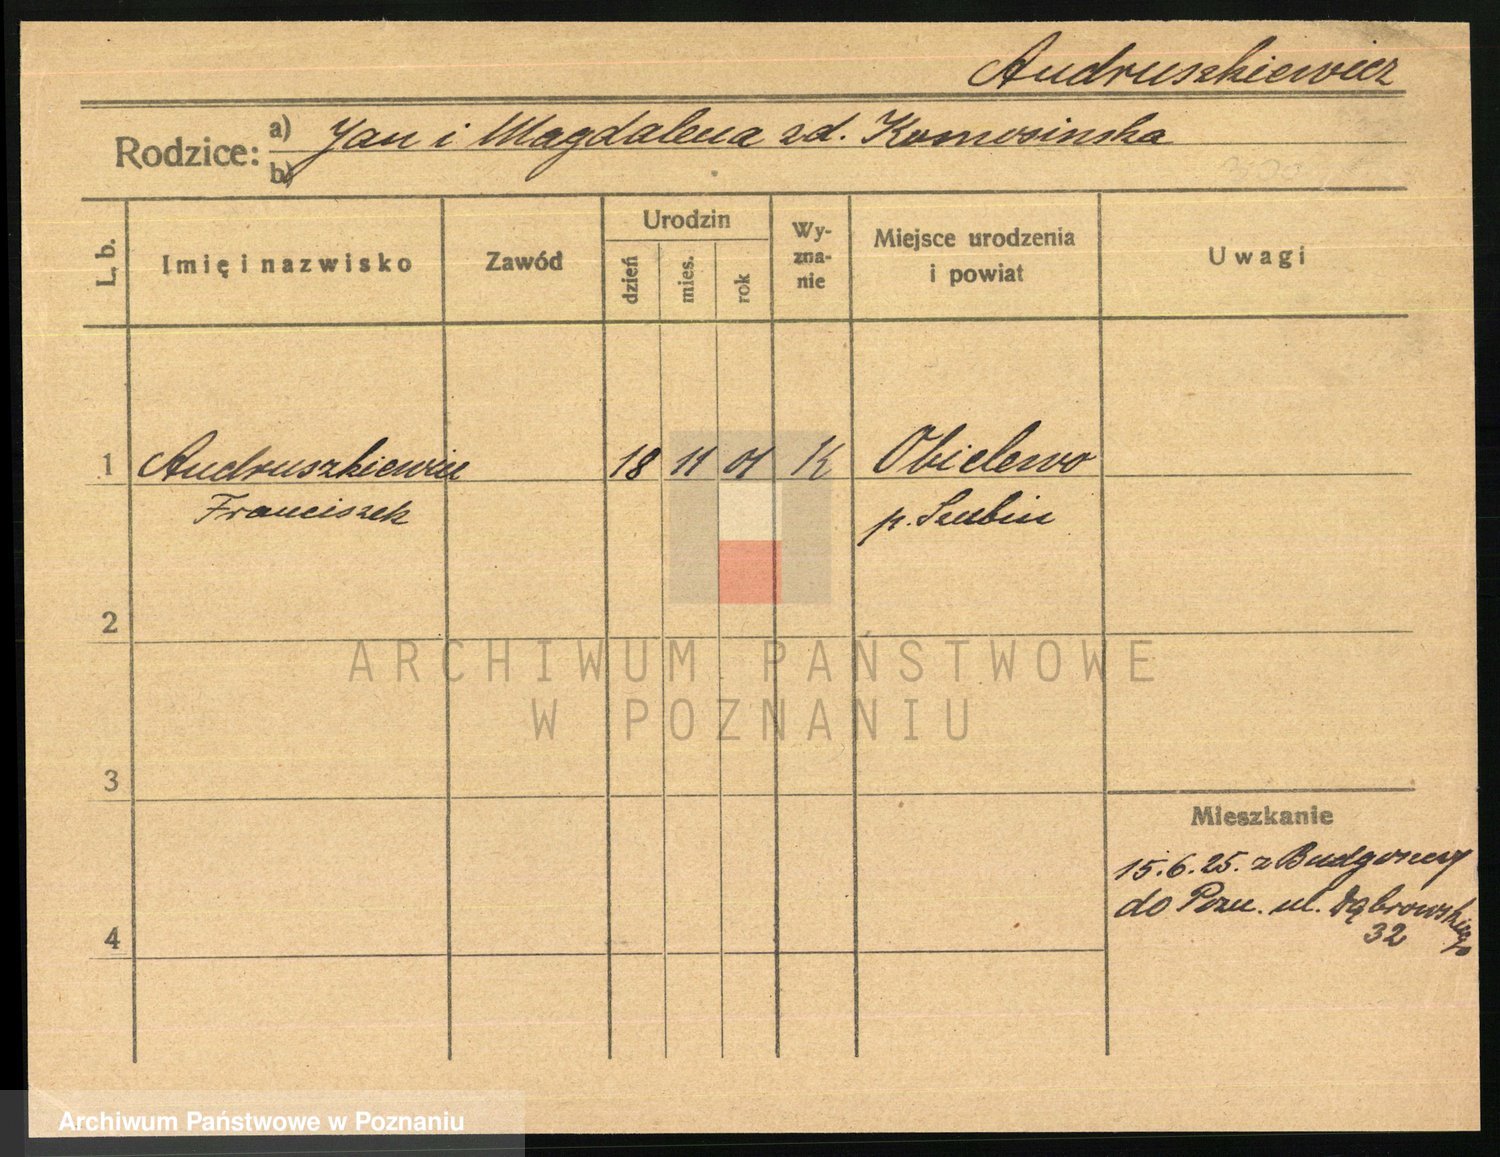 Andruszkiewicz
Rodzice: a) Jan i Magdalena zd. Komosinska
b)
L. b.
Imię i nazwisko
Zawód
Urodzin
dzień
mies.
rok
Wy-
zna-
nie
Miejsce urodzenia
i powiat
Uwagi
1 Andruszkiewicz 18 11 01 K Obielewo
Franciszek p. Szubin
2
ARCHIWUM PAŃSTWOWE
W POZNANIU
3
Mieszkanie
15.6.25. z Budgoszczy
do Pozn. ul. Dąbrowskiego
32
4
Archiwum Państwowe w Poznaniu